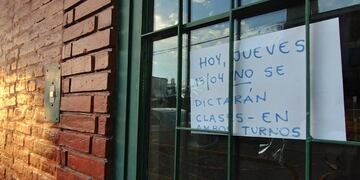 HOY, JUEVES
25/04 NO SE
DICTARÁN
CLASES - EN
AMBOS TURNOS